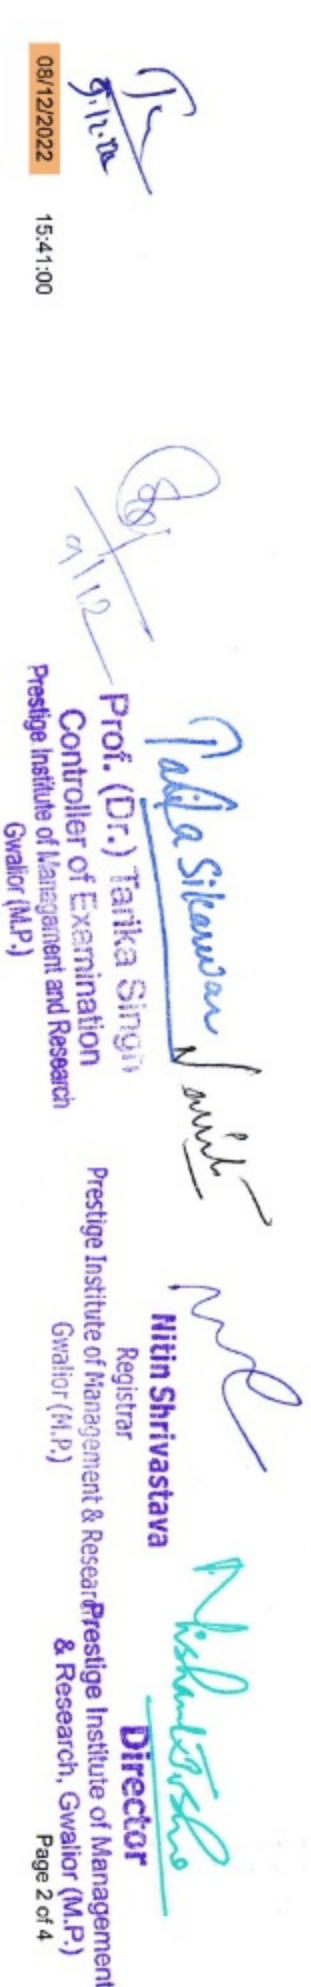 9.12.22
08/12/2022 15:41:00
9/12
Tarika Sikarwar
Prof. (Dr.) Tarika Singh
Controller of Examination
Prestige Institute of Management and Research
Gwalior (M.P.)
Nitin Shrivastava
Registrar
Prestige Institute of Management & Research
Gwalior (M.P.)
Director
Prestige Institute of Management
& Research, Gwalior (M.P.)
Page 2 of 4